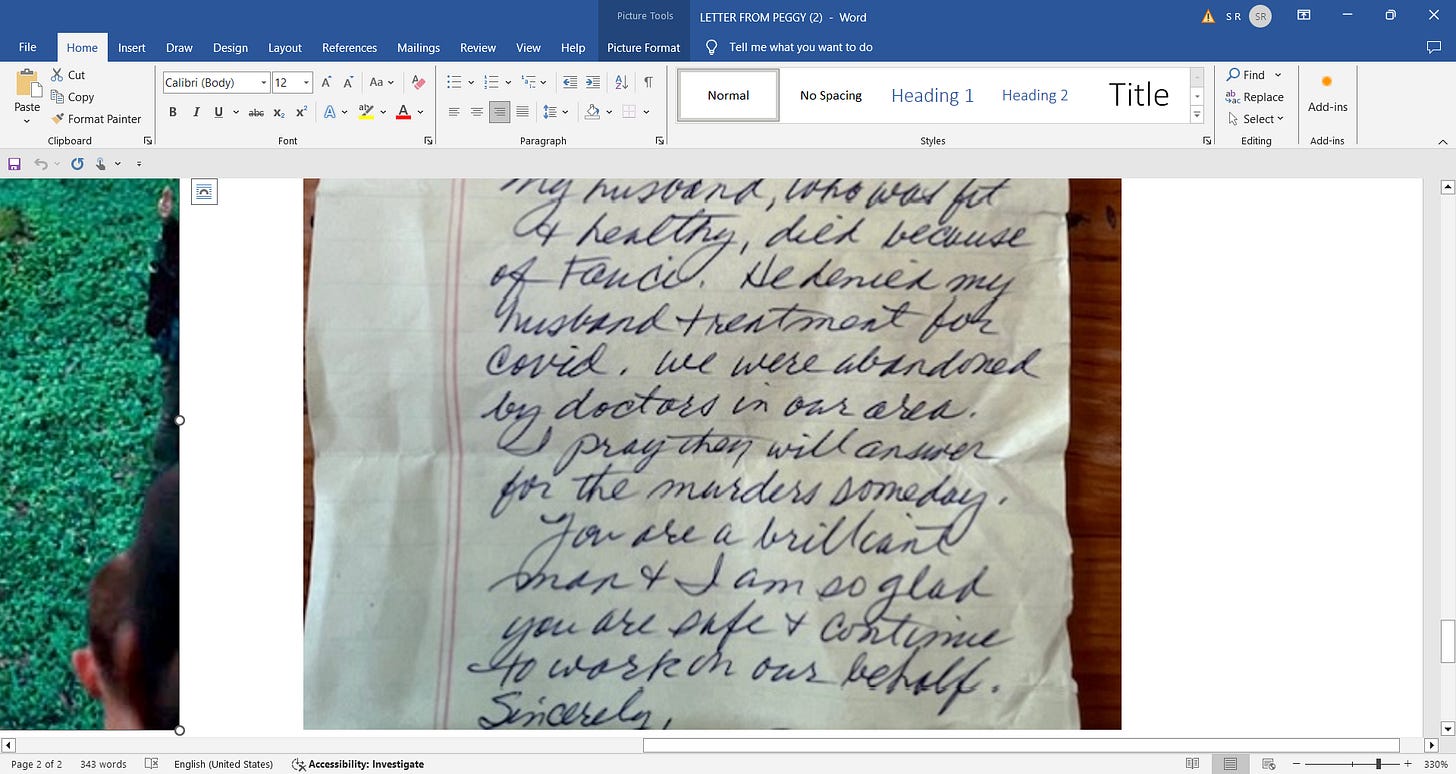 Picture Tools
LETTER FROM PEGGY (2) - Word
S R
SR
File
Home
Insert
Draw
Design
Layout
References
Mailings
Review
View
Help
Picture Format
Tell me what you want to do
Paste
Cut
Copy
Format Painter
Clipboard
Calibri (Body)
12
Aa
B I U abc x₂ x² A aby A
Font
Paragraph
Normal
No Spacing
Heading 1
Heading 2
Title
Styles
Find
Replace
Select
Editing
Add-ins
Add-ins
My husband, who was fit
& healthy, died because
of Fauci. He denied my
husband treatment for
Covid. We were abandoned
by doctors in our area.
I pray they will answer
for the murders someday.
You are a brilliant
man & I am so glad
you are safe & continue
to work on our behalf.
Sincerely,
Page 2 of 2
343 words
English (United States)
Accessibility: Investigate
330%